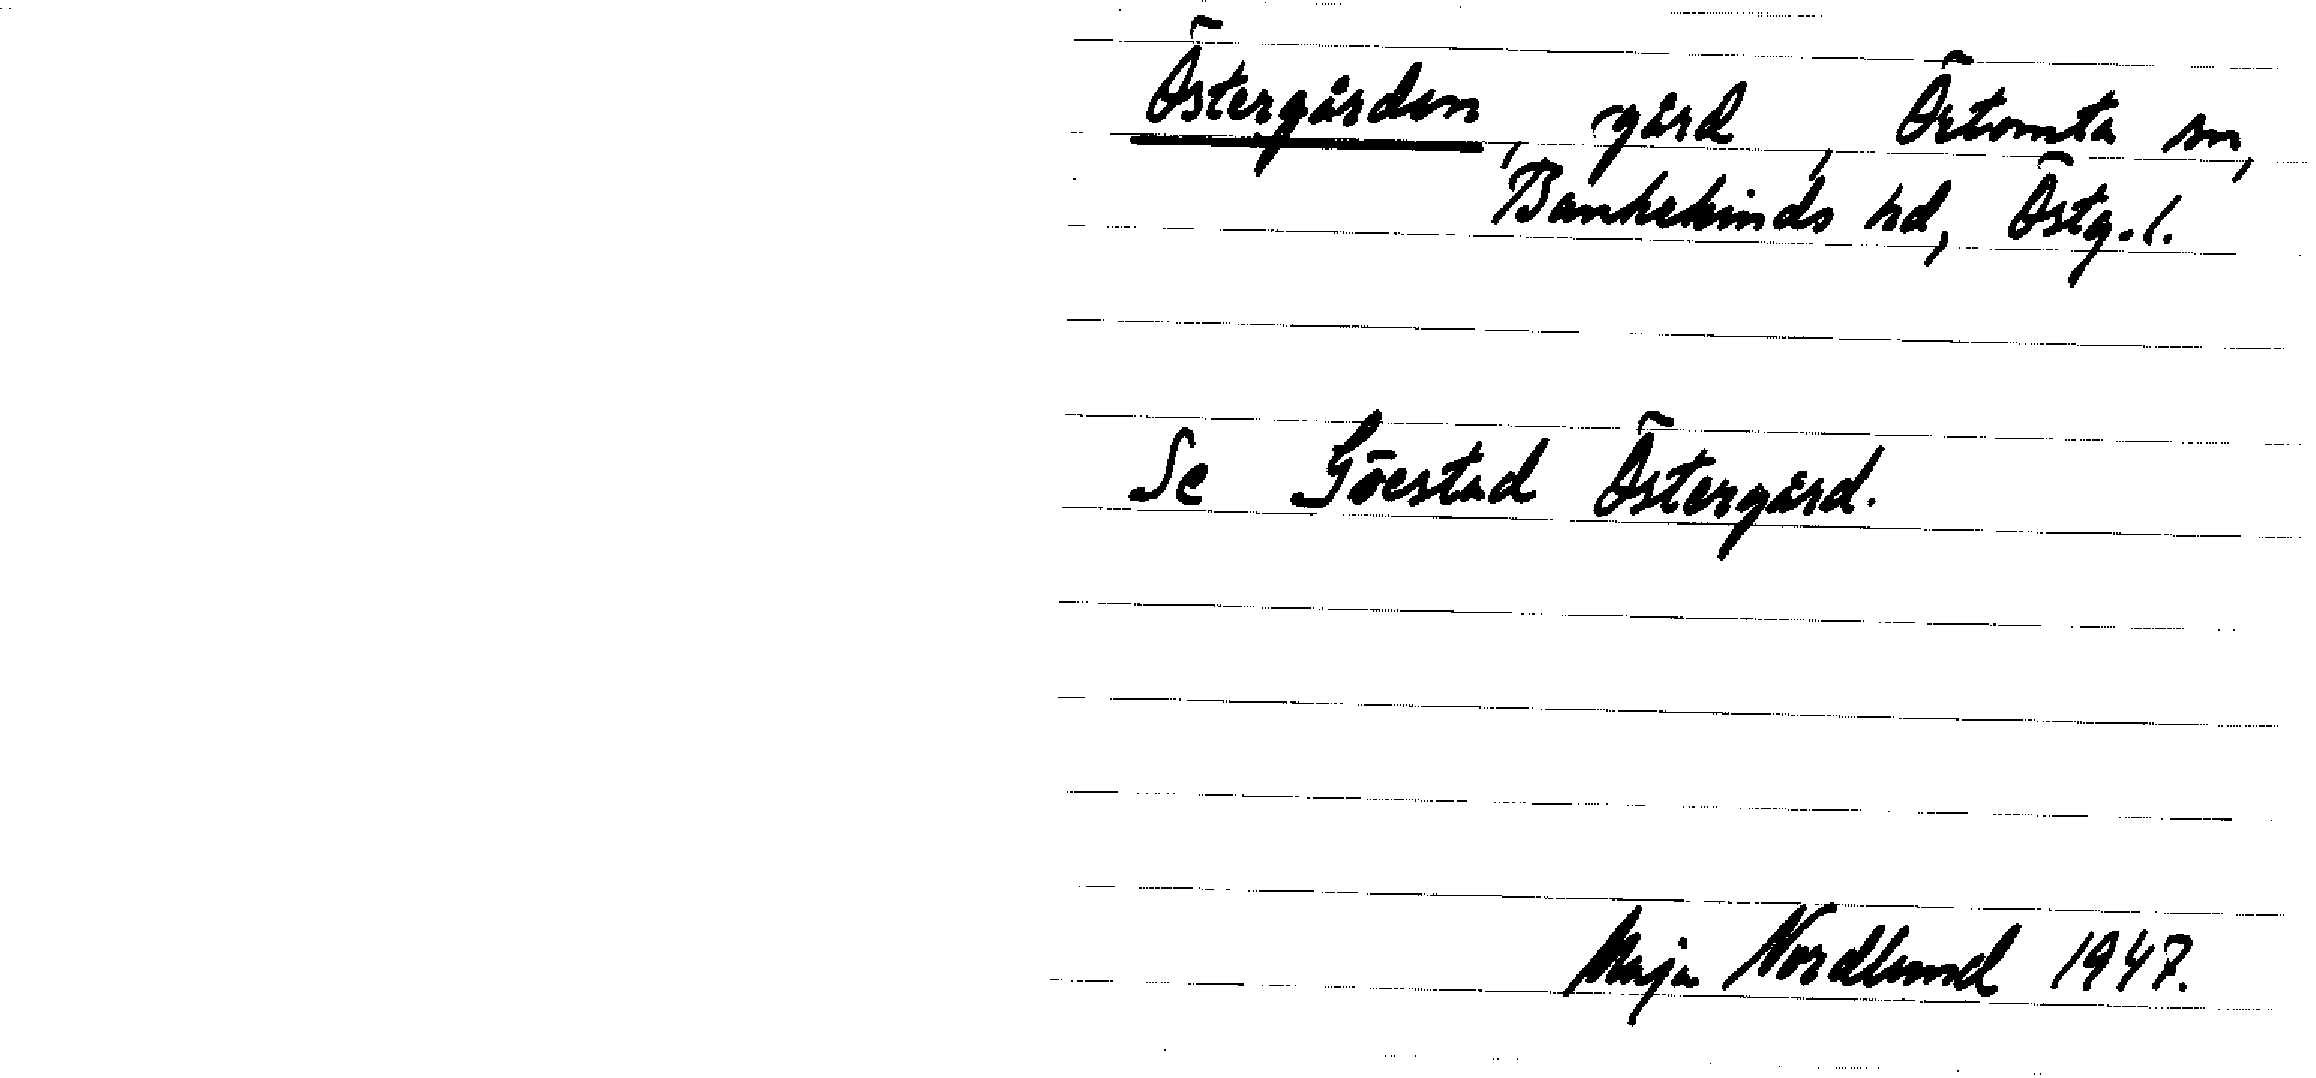 Östergården, gård, Örtomta sn,
Bankekinds hd, Östg. l.
Se Göestad Östergård.
Maja Nordlund 1947.